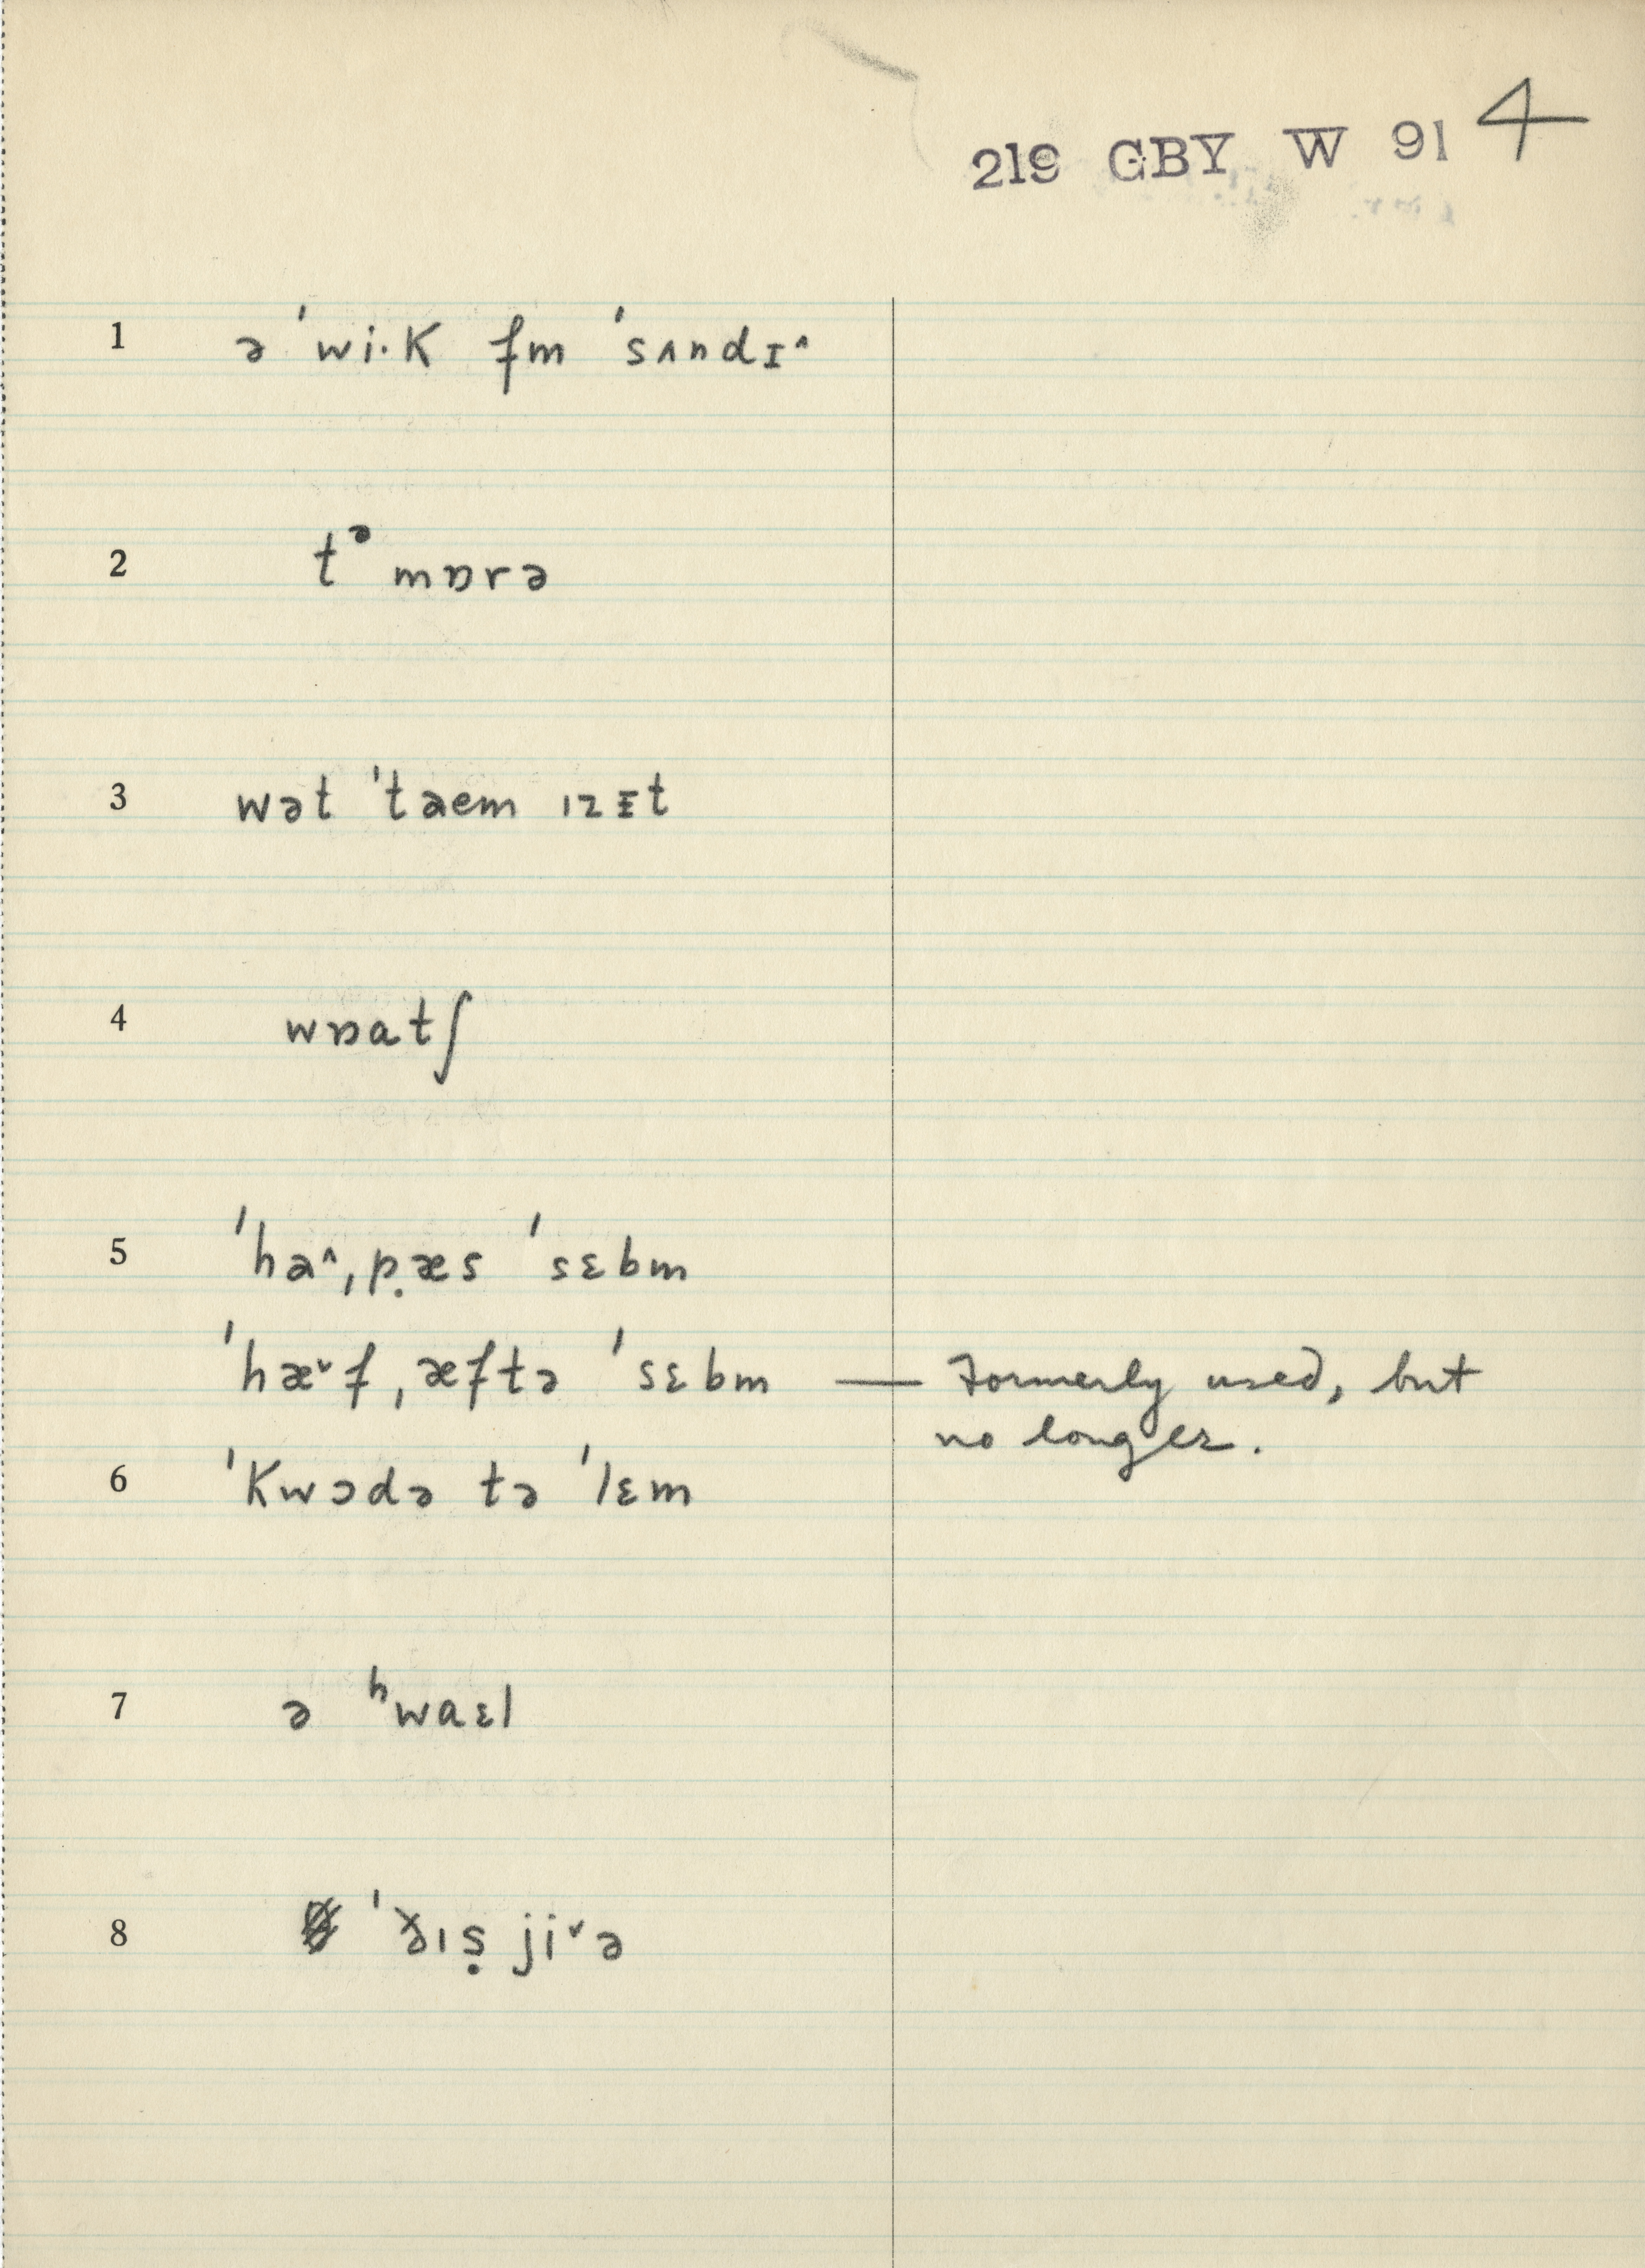 219 GBY W 91 4
1 ə ˈwi·K fm ˈsʌndɪ^
2 tᵊ mɒrə
3 wət ˈtaem ızɪt
4 wɒatʃ
5 ˈha^ˌp̣æs ˈsɛbm
ˈhæ˅fˌæftə ˈsɛbm — Formerly used, but
no longer.
6 ˈKwɔdə tə ˈlɛm
7 ə ʰwaɛl
8 ˈð̌ıṣ ji˅ə